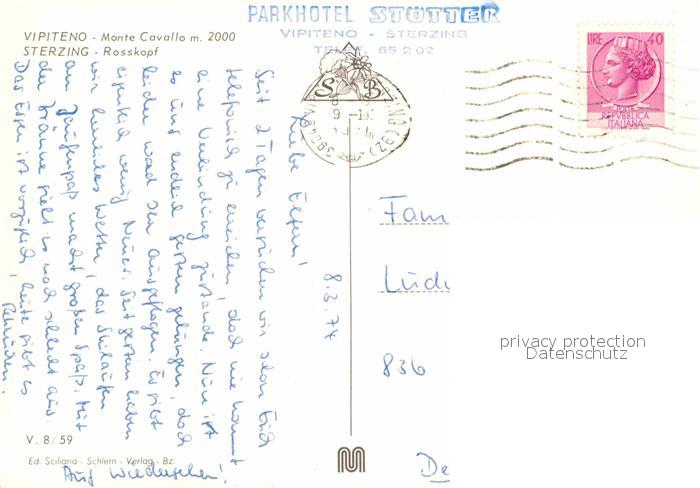 PARKHOTEL STÖTTER
VIPITENO - STERZING
TELEF. 65 2 02
VIPITENO - Monte Cavallo m. 2000
STERZING - Rosskopf
LIRE 40
POSTE
REPVBBLICA
ITALIANA
S B
8.3.74
Liebe Eltern!
Seit 2 Tagen versuchen wir schon Euch
telefonisch zu erreichen, doch nie kommt
eine Verbindung zustande. Nun ist
es uns endlich gestern gelungen, doch
leider ward Ihr ausgeflogen. Es gibt
eigentlich wenig Neues. Seit gestern haben
wir herrliches Wetter, das Skilaufen
am Jaufenpaß macht großen Spaß. Mit
der Bräune sieht es noch schlecht aus.
Das Essen ist vorzüglich, heute gibt es
Auf Wiedersehen!
Fam
Lüd
836
De
privacy protection
Datenschutz
V. 8/59
Ed. Sciliana - Schlern - Verlag - Bz.